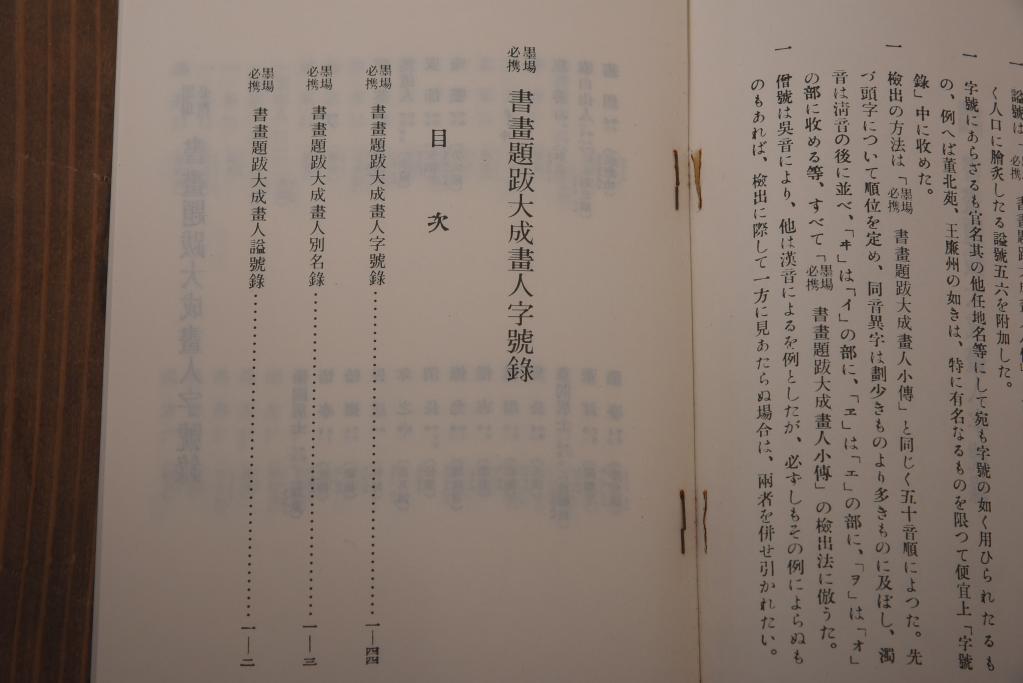 諡號は「墨場必携 書畫題跋大成畫人小傳」
く人口に膾炙したる諡號五六を附加した。
一 字號にあらざるも官名其の他任地名等にして宛も字號の如く用ひられたるも
の、例へば董北苑、王廉州の如きは、特に有名なるものを限つて便宜上「字號
錄」中に收めた。
一 檢出の方法は「墨場必携 書畫題跋大成畫人小傳」と同じく五十音順によつた。先
づ頭字について順位を定め、同音異字は劃少きものより多きものに及ぼし、濁
音は淸音の後に並べ、「ヰ」は「イ」の部に、「ヱ」は「エ」の部に、「ヲ」は「オ」
の部に收める等、すべて「墨場必携 書畫題跋大成畫人小傳」の檢出法に倣うた。
一 僧號は吳音により、他は漢音によるを例としたが、必ずしもその例によらぬも
のもあれば、檢出に際して一方に見あたらぬ場合は、兩者を併せ引かれたい。
墨場必携 書畫題跋大成畫人字號錄
目次
墨場必携 書畫題跋大成畫人字號錄……………一—四四
墨場必携 書畫題跋大成畫人別名錄……………一—三
墨場必携 書畫題跋大成畫人諡號錄……………一—二